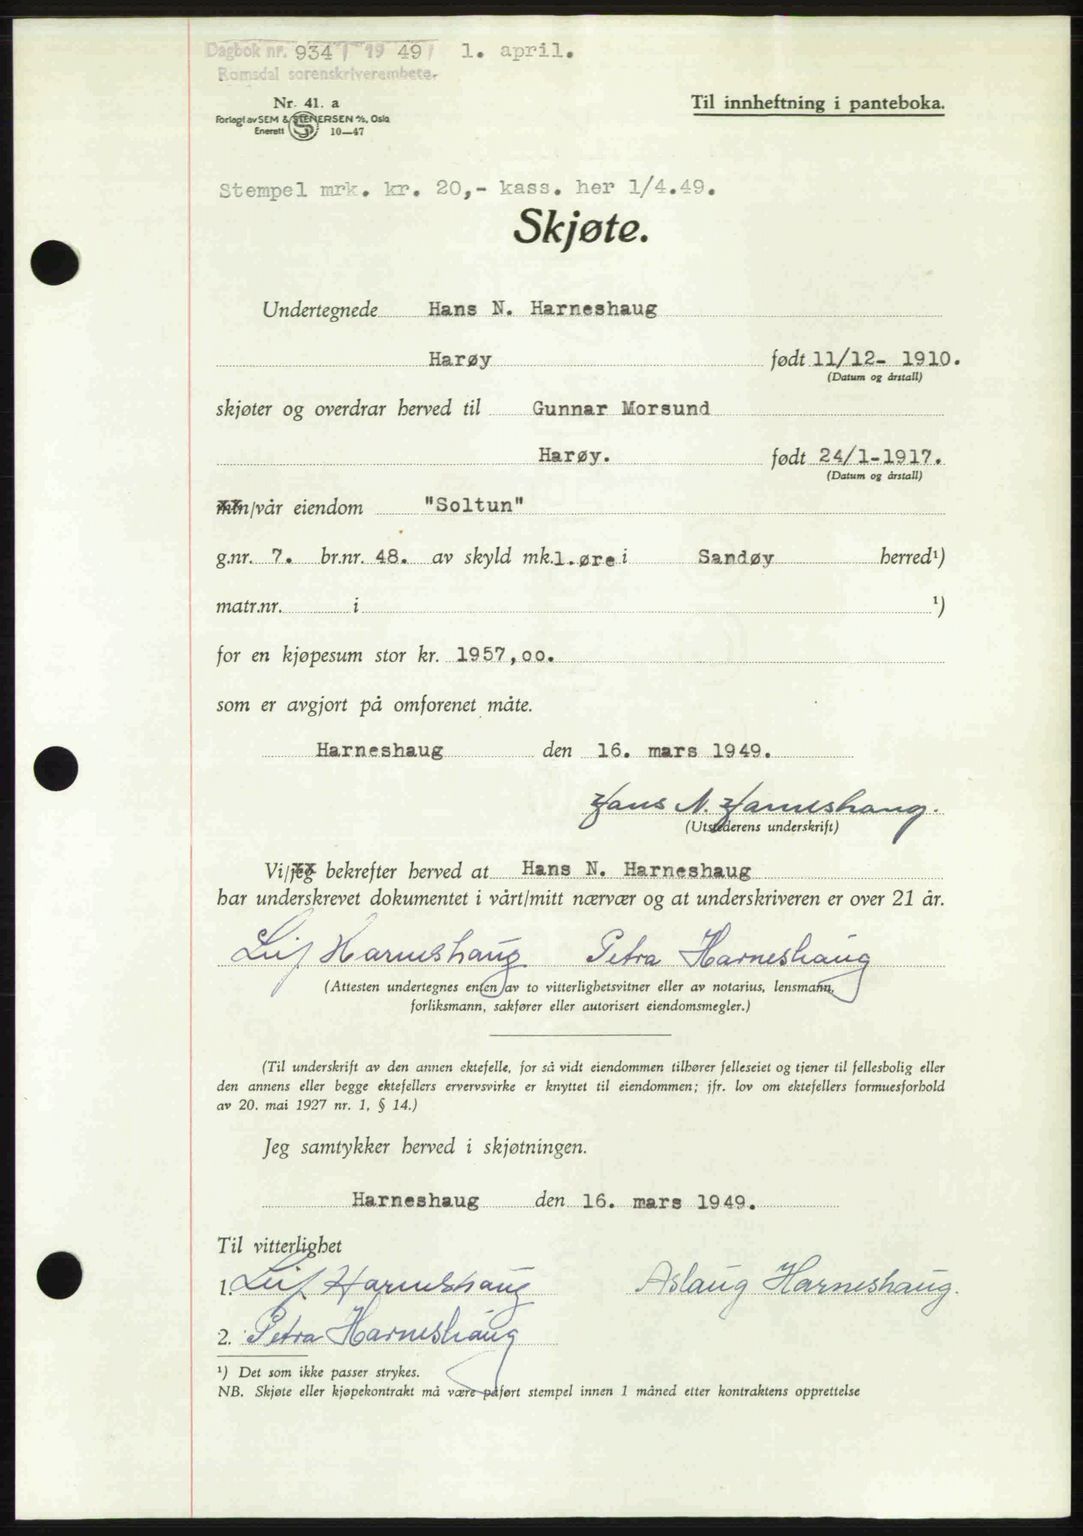 Dagbok nr. 934 / 19 49 / 1. april.
Romsdal sorenskriverembete.
Nr. 41. a
Til innheftning i panteboka.
Forlagt av SEM & STENERSEN A/S, Oslo
Enerett 10—47
Stempel mrk. kr. 20,- kass. her 1/4.49.
Skjøte.
Undertegnede Hans N. Harneshaug
Harøy født 11/12- 1910.
(Datum og årstall)
skjøter og overdrar herved til Gunnar Morsund
Harøy. født 24/1-1917.
(Datum og årstall)
min/vår eiendom "Soltun"
g.nr. 7. br.nr. 48. av skyld mk. 1.øre i Sandøy herred¹)
matr.nr. i ¹)
for en kjøpesum stor kr. 1957,oo.
som er avgjort på omforenet måte.
Harneshaug den 16. mars 1949.
Hans N. Harneshaug.
(Utstederens underskrift)
Vi/jeg bekrefter herved at Hans N. Harneshaug
har underskrevet dokumentet i vårt/mitt nærvær og at underskriveren er over 21 år.
Leif Harneshaug Petra Harneshaug
(Attesten undertegnes enten av to vitterlighetsvitner eller av notarius, lensmann,
forliksmann, sakfører eller autorisert eiendomsmegler.)
(Til underskrift av den annen ektefelle, for så vidt eiendommen tilhører felleseiet og tjener til fellesbolig eller
den annens eller begge ektefellers ervervsvirke er knyttet til eiendommen; jfr. lov om ektefellers formuesforhold
av 20. mai 1927 nr. 1, § 14.)
Jeg samtykker herved i skjøtningen.
Harneshaug den 16. mars 1949.
Til vitterlighet
1. Leif Harneshaug Aslaug Harneshaug.
2. Petra Harneshaug
¹) Det som ikke passer strykes.
NB. Skjøte eller kjøpekontrakt må være påført stempel innen 1 måned etter kontraktens opprettelse